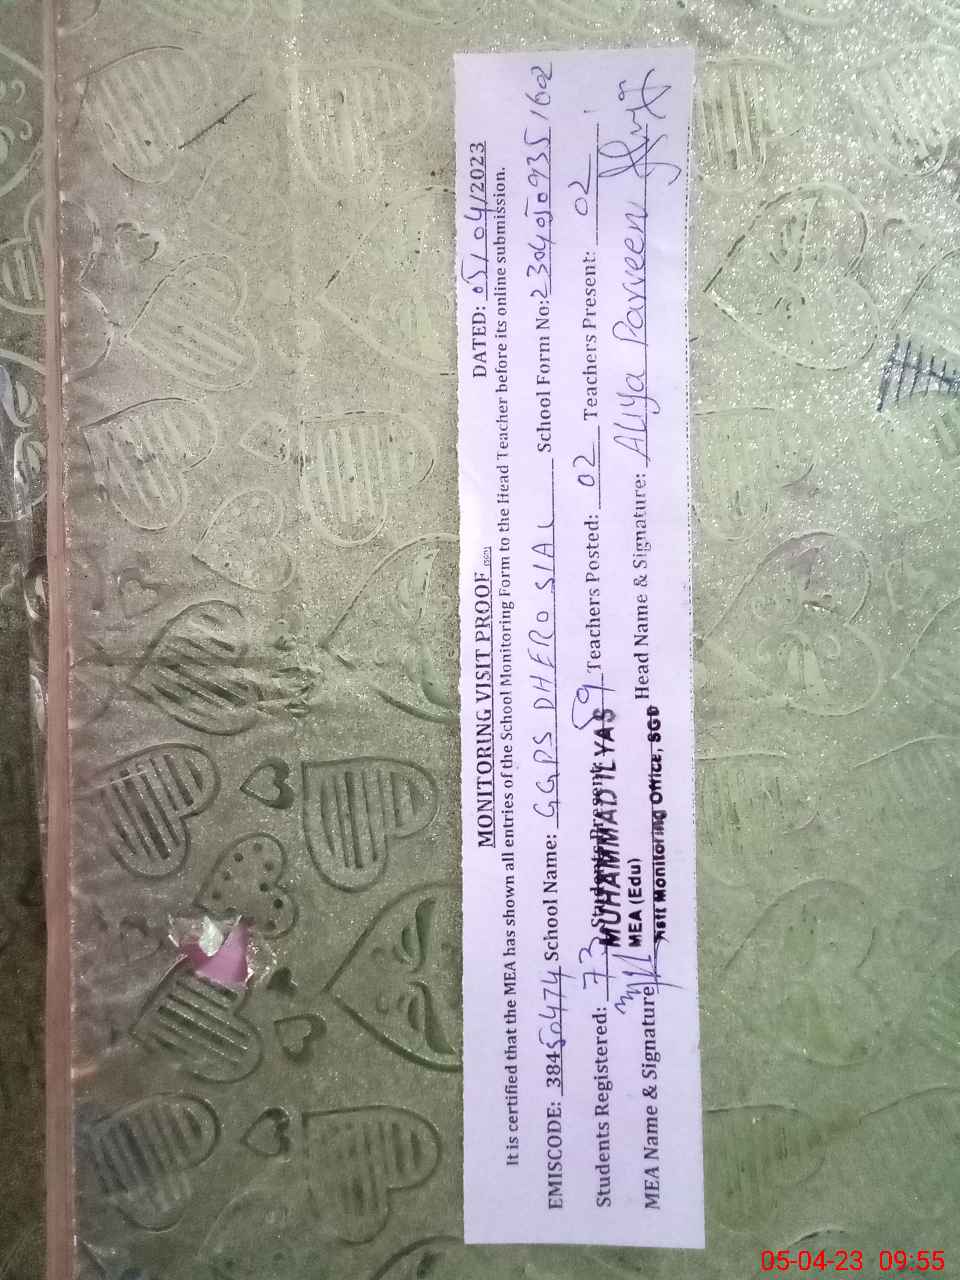 MONITORING VISIT PROOF DATED: 05/04/2023
It is certified that the MEA has shown all entries of the School Monitoring Form to the Head Teacher before its online submission.
EMISCODE: 38450474 School Name: GGPS DHERO SIAL School Form No: 23040509351602
Students Registered: 73 Students Present 59 Teachers Posted: 02 Teachers Present: 02
MUHAMMAD ILYAS
MEA (Edu)
MEA Name & Signature Monitoring Office, SGD Head Name & Signature: Aliya Parveen
05-04-23 09:55